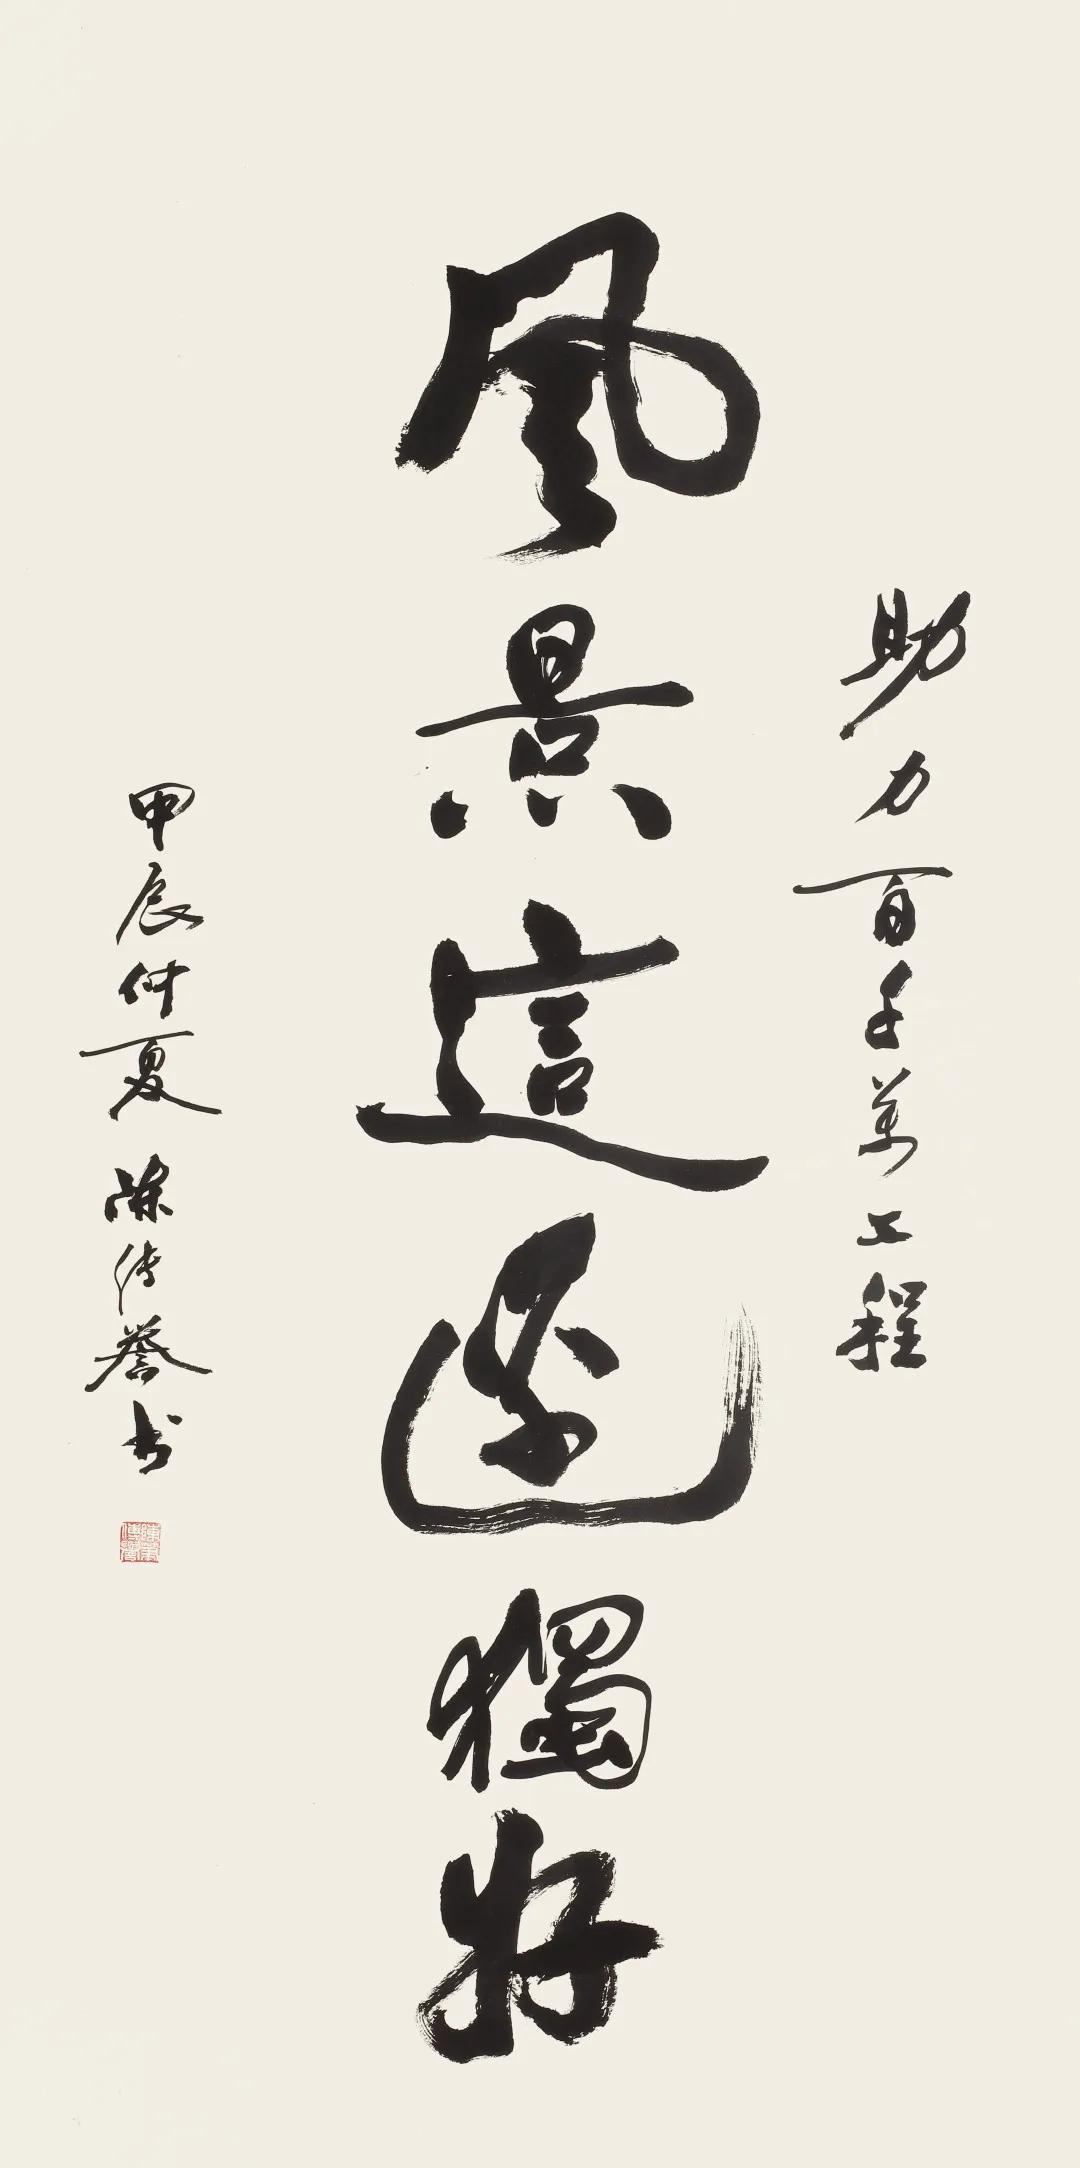 助力百千萬工程
風景這邊獨好
甲辰仲夏 陳傳譽書